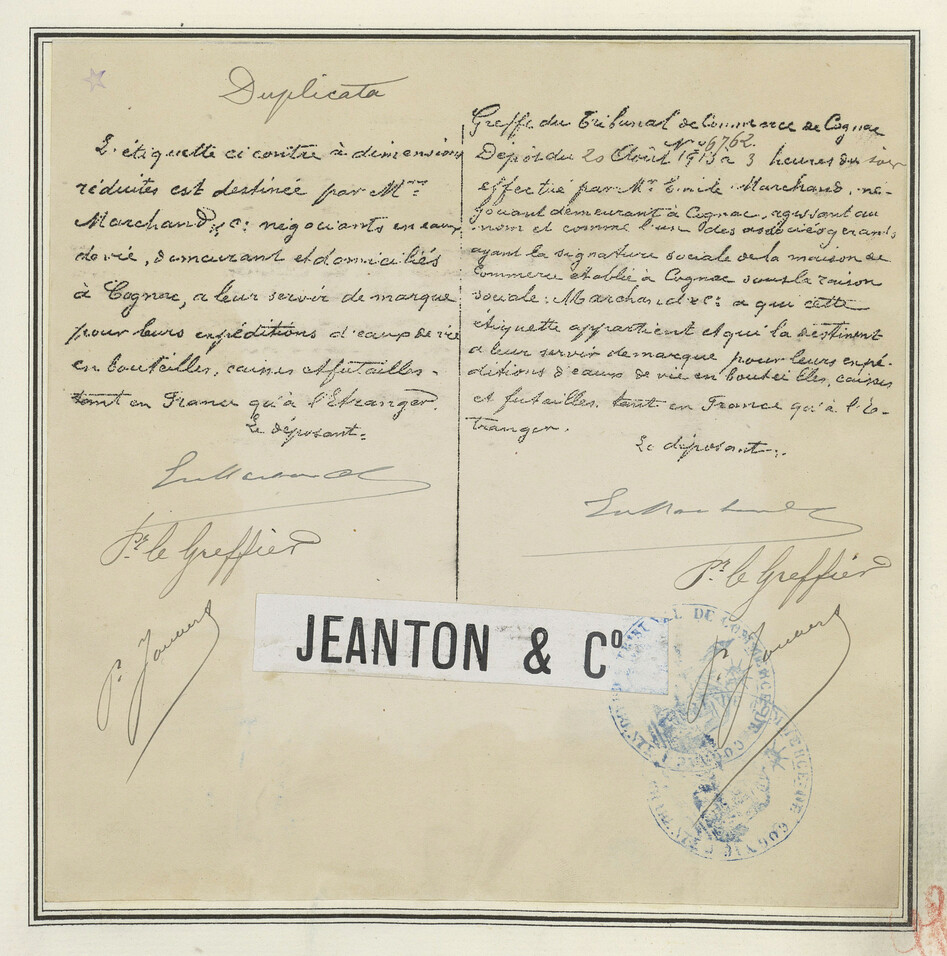 Duplicata
L'étiquette ci contre à dimensions
réduites est destinée par Mrs
Marchand & Cie négociants en eaux
de vie, demeurant et domiciliés
à Cognac, a leur servir de marque
pour leurs expéditions d'eaux de vie
en bouteilles, caisses et futailles.
tant en France qu'à l'Etranger.
Le déposant:
Pr le Greffier
Greffe du Tribunal de Commerce de Cognac
No 6762.
Dépôt du 20 Août 1913 à 3 heures du soir
effectué par Mr Emile Marchand, né-
gociant demeurant à Cognac, agissant au
nom et comme l'un des associés gérants
ayant la signature sociale de la maison de
Commerce établie à Cognac sous la raison
sociale: Marchand & Cie à qui cette
étiquette appartient et qui la destinent
a leur servir de marque pour leurs expé-
ditions d'eaux de vie en bouteilles, caisses
et futailles, tant en France qu'à l'E-
tranger.
Le déposant:
Pr le Greffier
JEANTON & Co
TRIBUNAL DE COMMERCE DE COGNAC